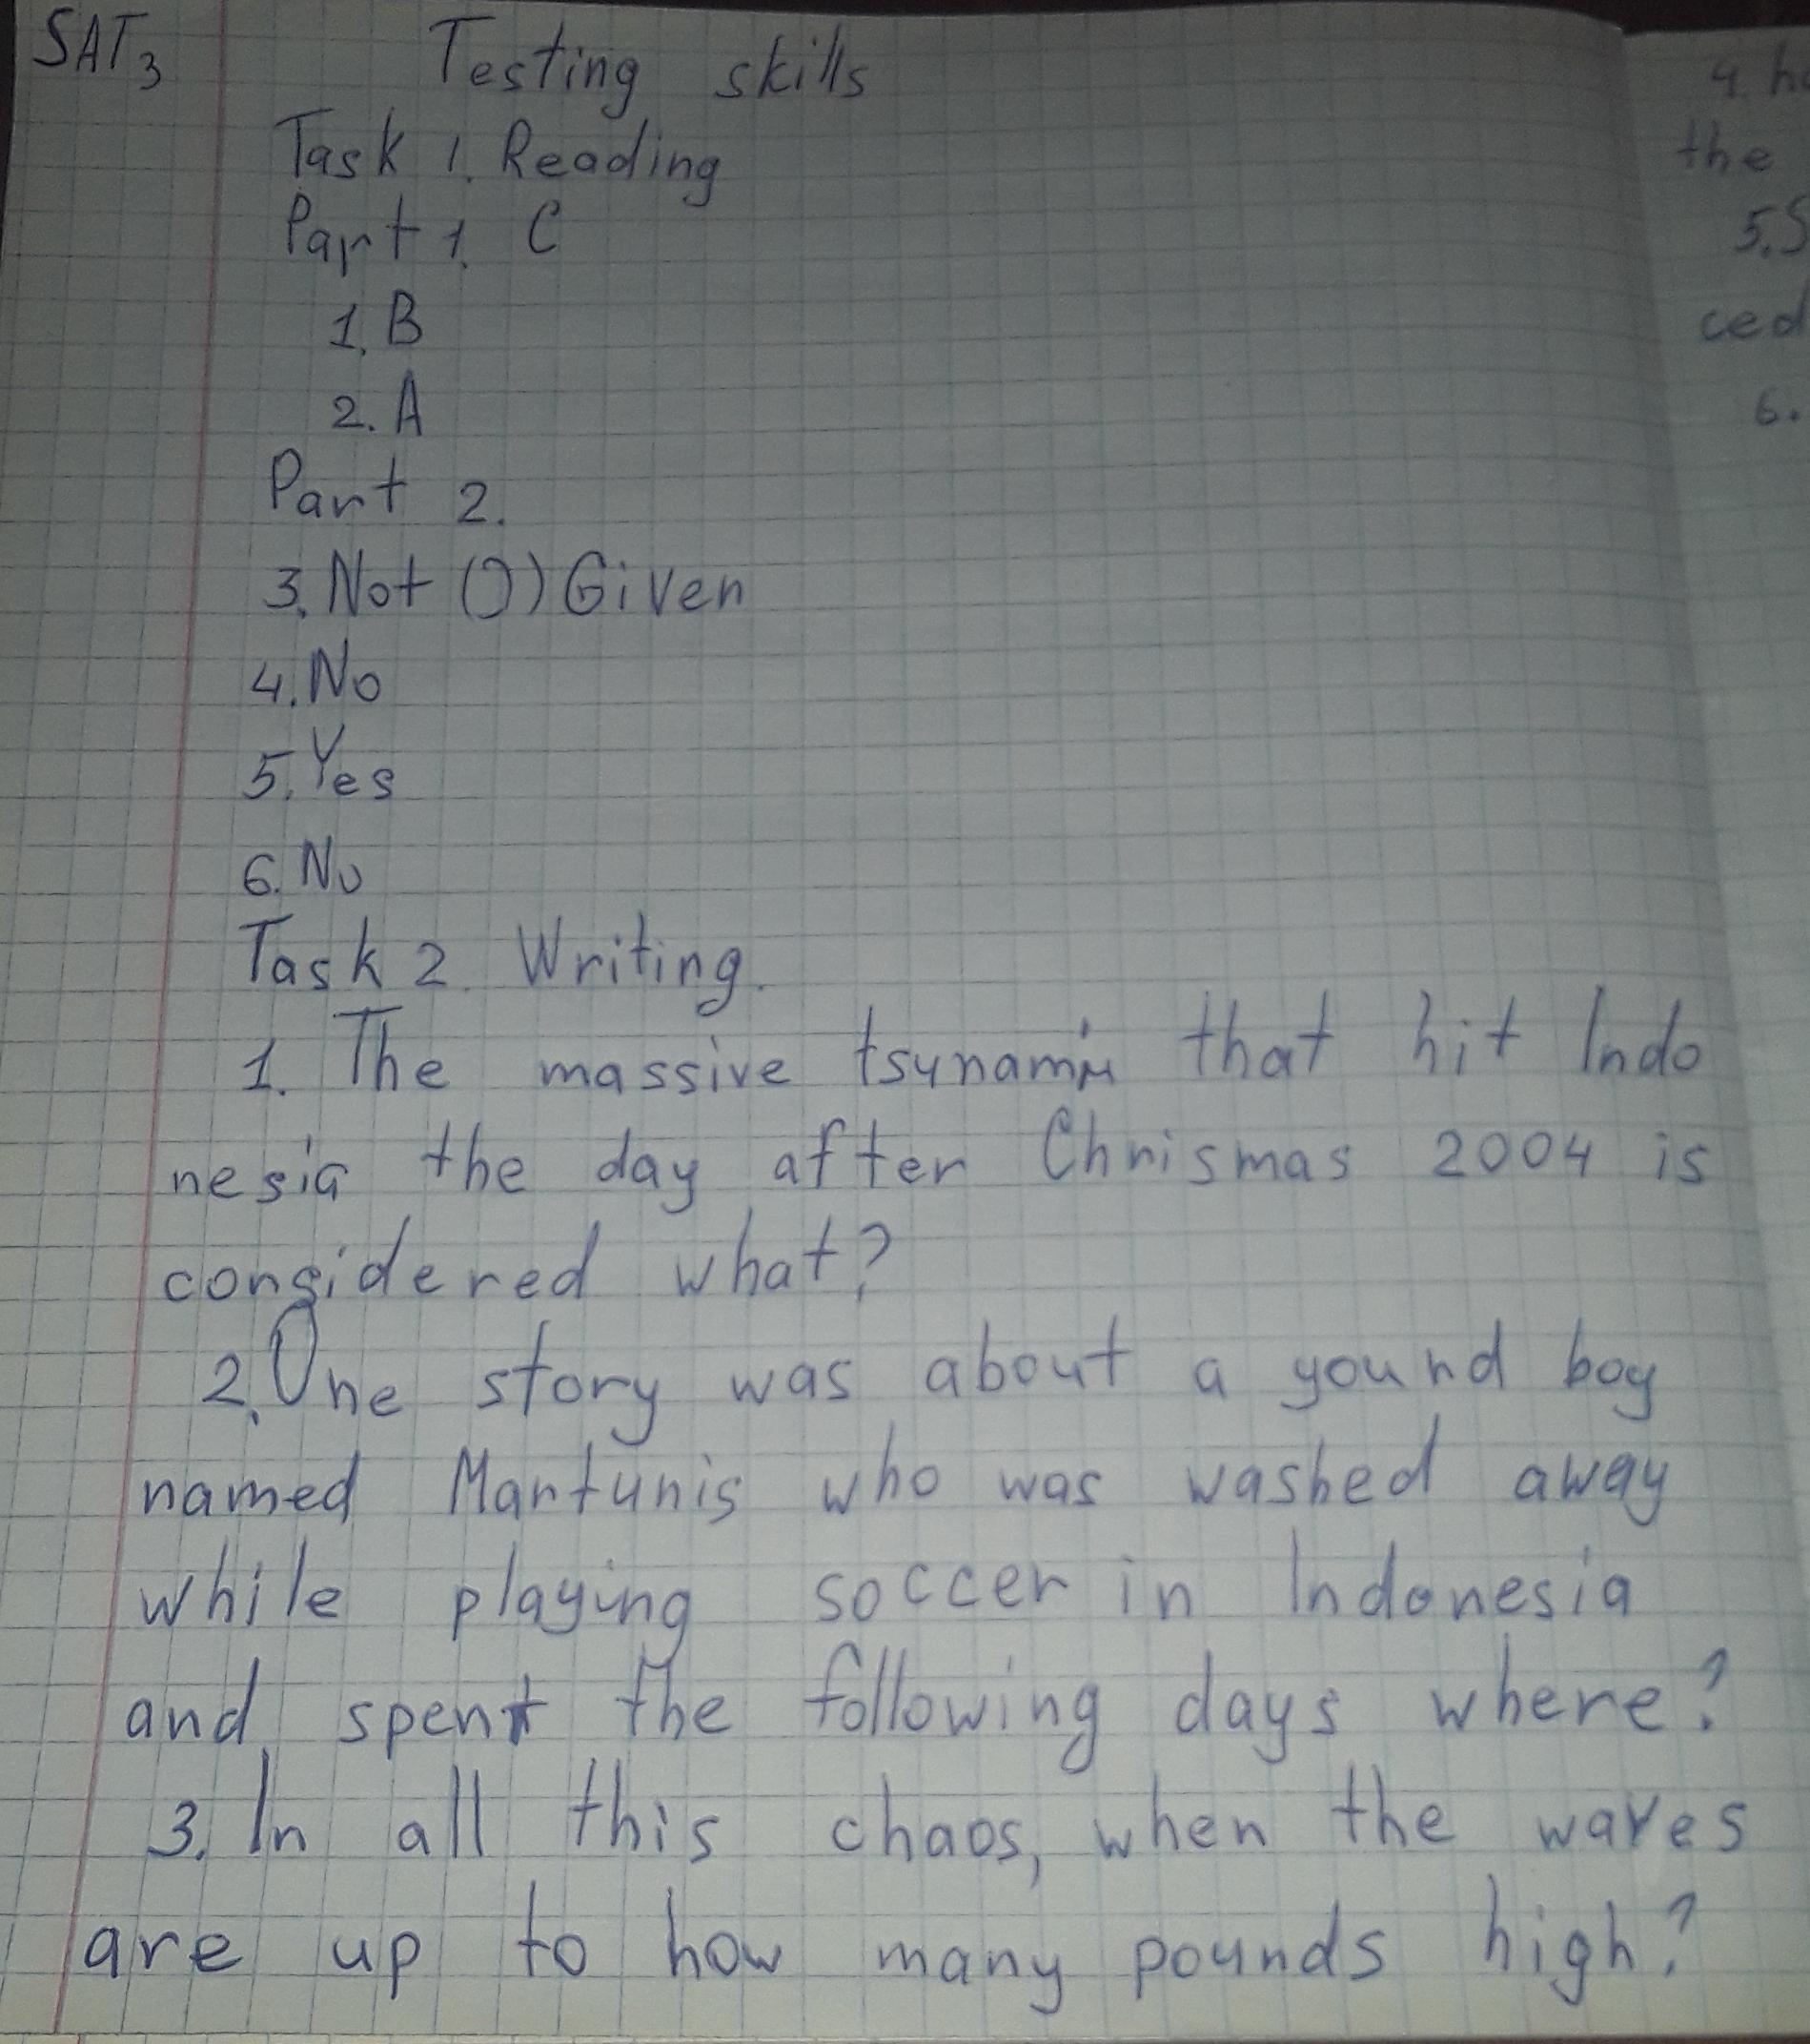 SAT3 Testing skills
Task 1. Reading
Part 1. C
1. B
2. A
Part 2.
3. Not () Given
4. No
5. Yes
6. No
Task 2. Writing.
1. The massive tsynami that hit Indo
nesia the day after Chrismas 2004 is
considered what?
2. One story was about a yound boy
named Martunis who was washed away
while playing soccer in Indonesia
and spent the following days where?
3. In all this chaos, when the waves
are up to how many pounds high?
4.
the
5. S
ced
6.